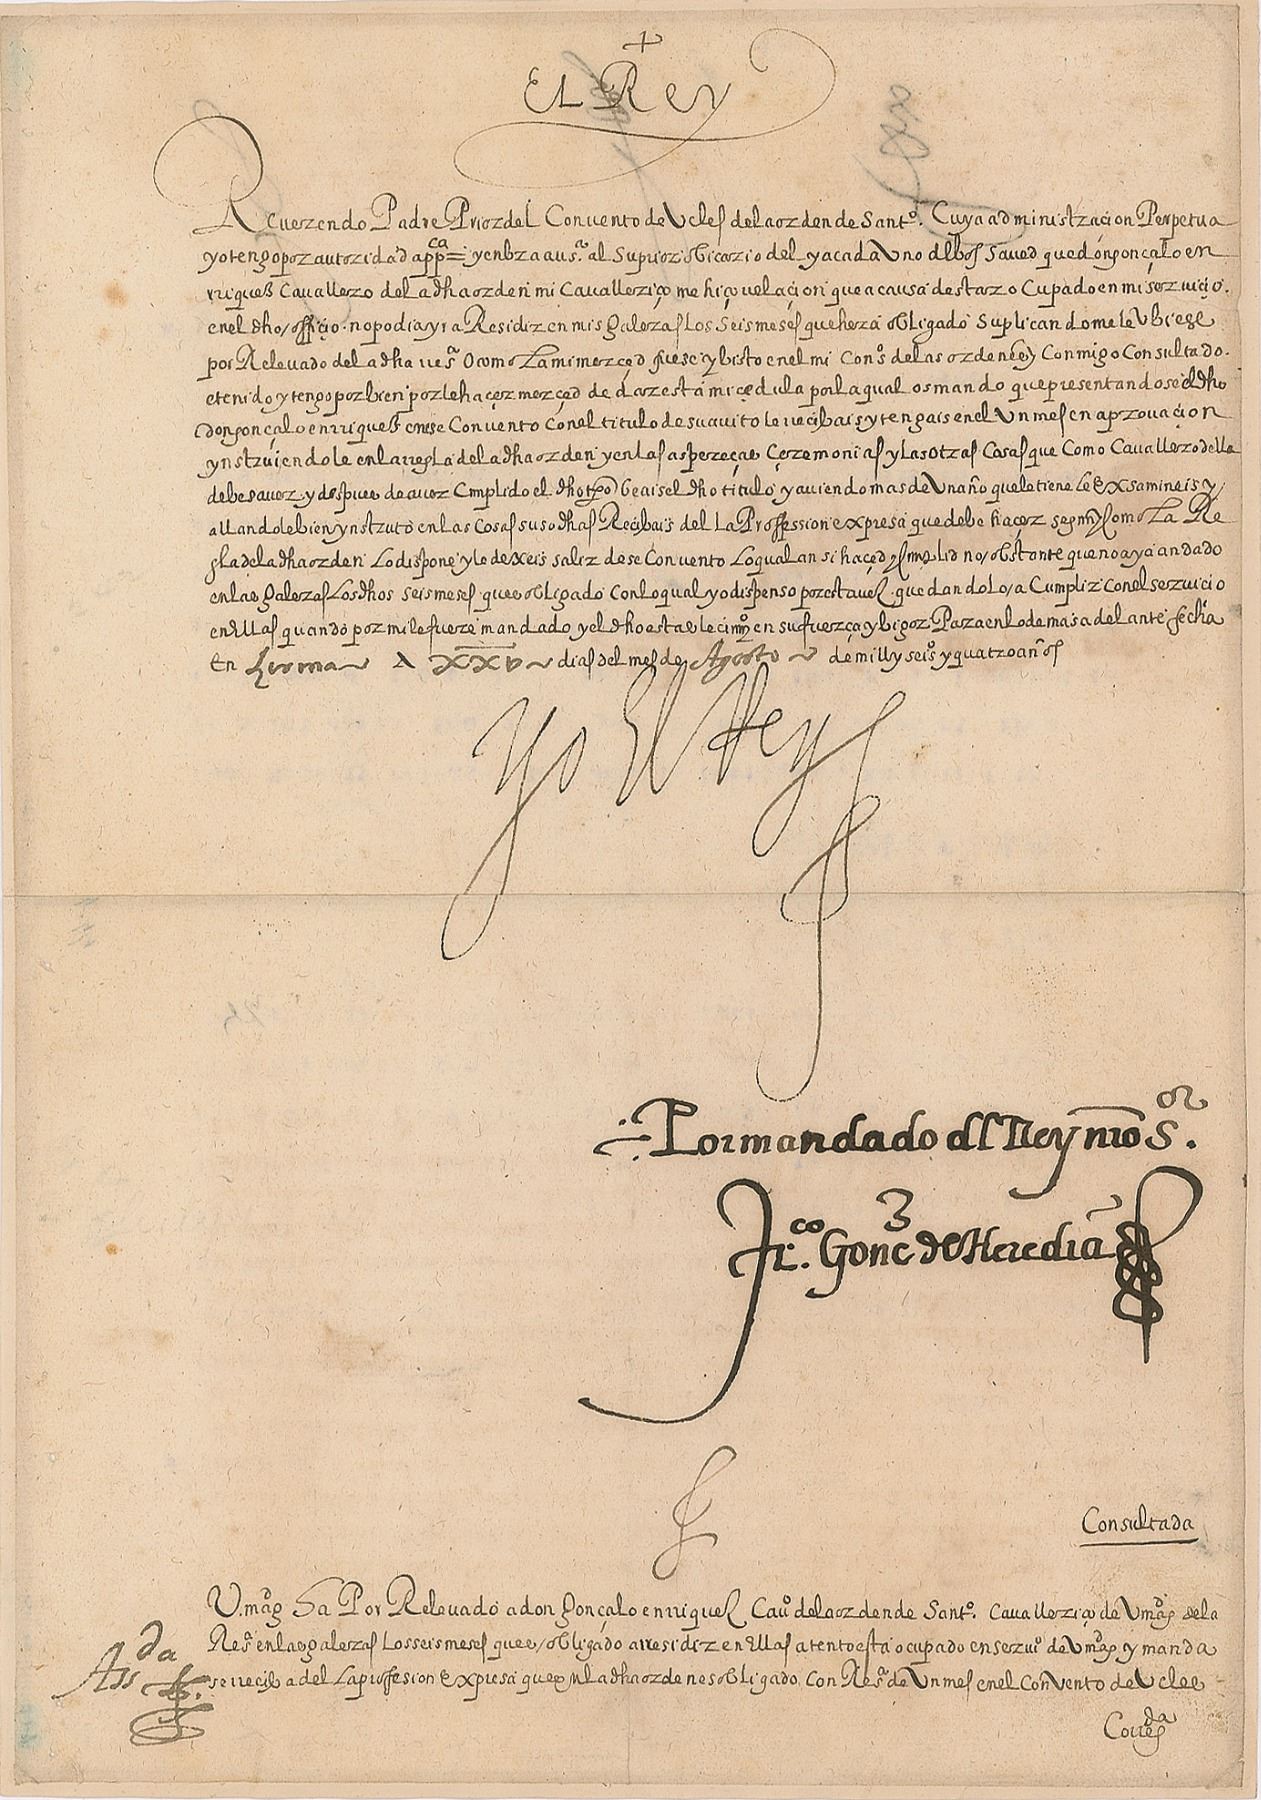 +
El Rey
Reuerendo Padre Prior del Conuento de Ucles de la orden de Sant.º Cuya administraçion Perpetua
yo tengo por autoridad app.ca y en bra aus.ª al Suprior o bicario del y a cada Uno dellos Saued que don gonçalo en
rriquez Cauallero de la dha orden mi Caualleriço me hiço relaçion que a causa de star oCupado en mi seruiçio.
en el dho officio no podia yr a Residir en mis galeras los seis meses que hera obligado Suplicandome le Ubiese
por Releuado de la dha res.ª o como la mi merçed fuese y bisto en el mi Cons.º de las ordenes y Conmigo Consultado.
e tenido y tengo por bien por le haçer merçed de dar esta mi çedula por la qual os mando que presentandose el dho
don gonçalo enrriquez en ese Conuento Con el titulo de su auito le reçibais y tengais en el Un mes en aprouaçion
ynstruiendole en la rregla de la dha orden y en las aspereças Çeremonias y las otras Cosas que Como Cauallero della
debe sauer y despues de auer Cumplido el dho tpo beais el dho titulo y auiendo mas de Un año que le tiene le exsamineis y
allandole bien ynstruto en las Cosas suso dhas Reçibais del La Proffession expresa que debe haçer segun y Como La Re
gla de la dha orden Lo dispone y le dexeis salir dese Conuento Lo qual ansi haçed y Cumplid no obstante que no aya andado
en las galeras Los dhos seis meses que es obligado Con lo qual yo dispenso por esta uez quedandolo a Cumplir Con el seruicio
en Ellas quando por mi le fuere mandado y el dho estableçim.to en su fuerça y bigor Para en lo de mas adelante fecha
En Lerma A XXV dias del mes de Agosto de mill y seis.º y quatro años
Yo El Rey
Por mandado del Rey nro S.or
Fr.co Gonç de Heredia
Consultada
V. mag.d Ha Por Releuado a don gonçalo enrriquez Cau.º de la orden de Sant.º Caualleriço de V mag.d de la
Res.ª en las galeras Los seis meses que es obligado a residir en Ellas atento esta ocupado en seruº de V mag.d y manda
se reciba del La proffesion Expresa que en la dha orden es obligado Con Res.ª de Un mes en el Conuento de Ucles
Ass.da
Corres.da